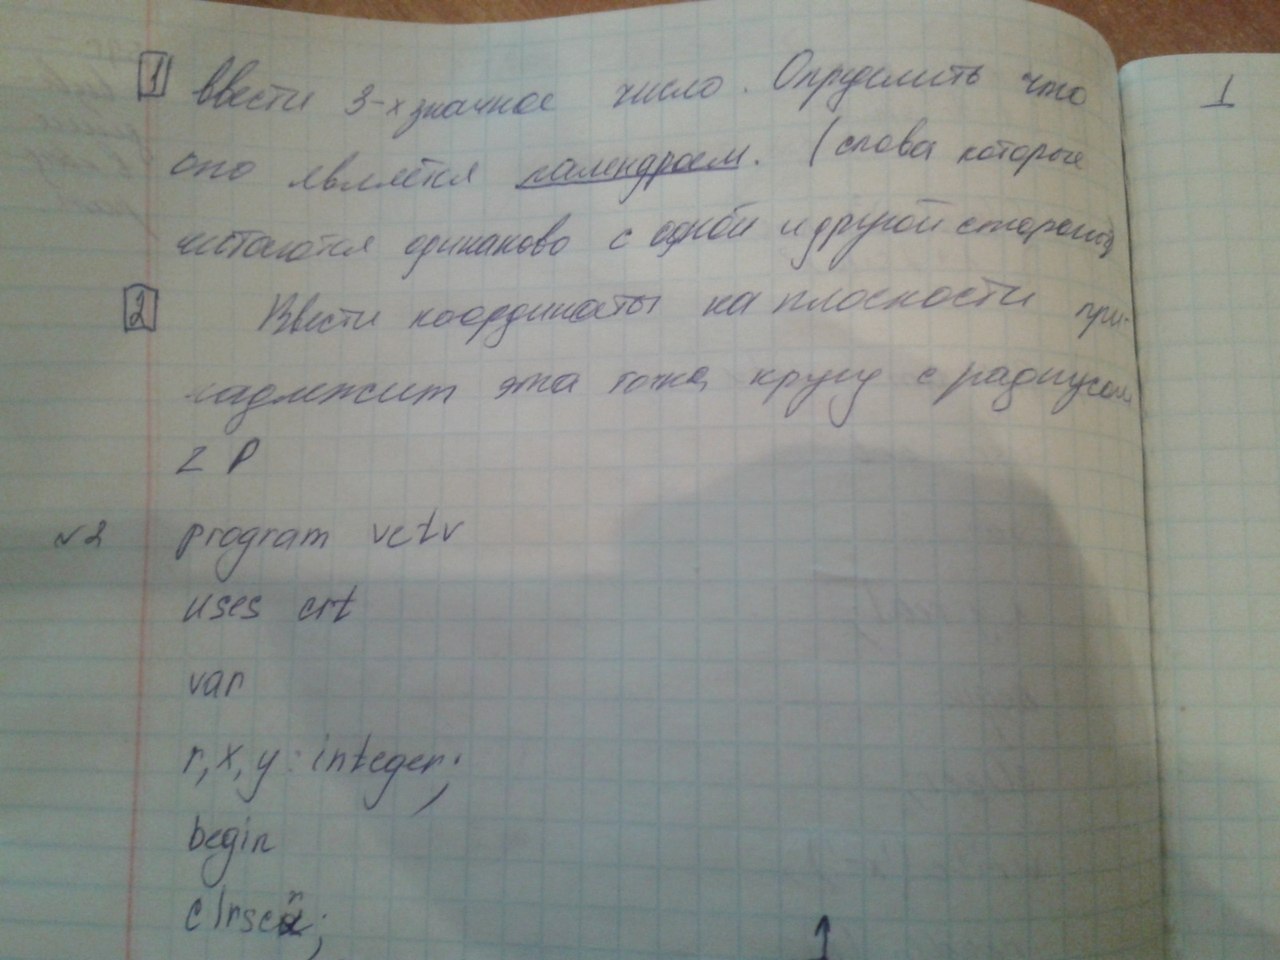 1 Ввести 3-х значное число. Определить что
оно является палендроем. (слова которые
читаются одинаково с одной и другой стороны)
2 Ввести координаты на плоскости при-
надлежит эта точка кругу с радиусом
z P
√2 program vctv
uses crt
var
r, x, y : integer;
begin
clrscr;
1